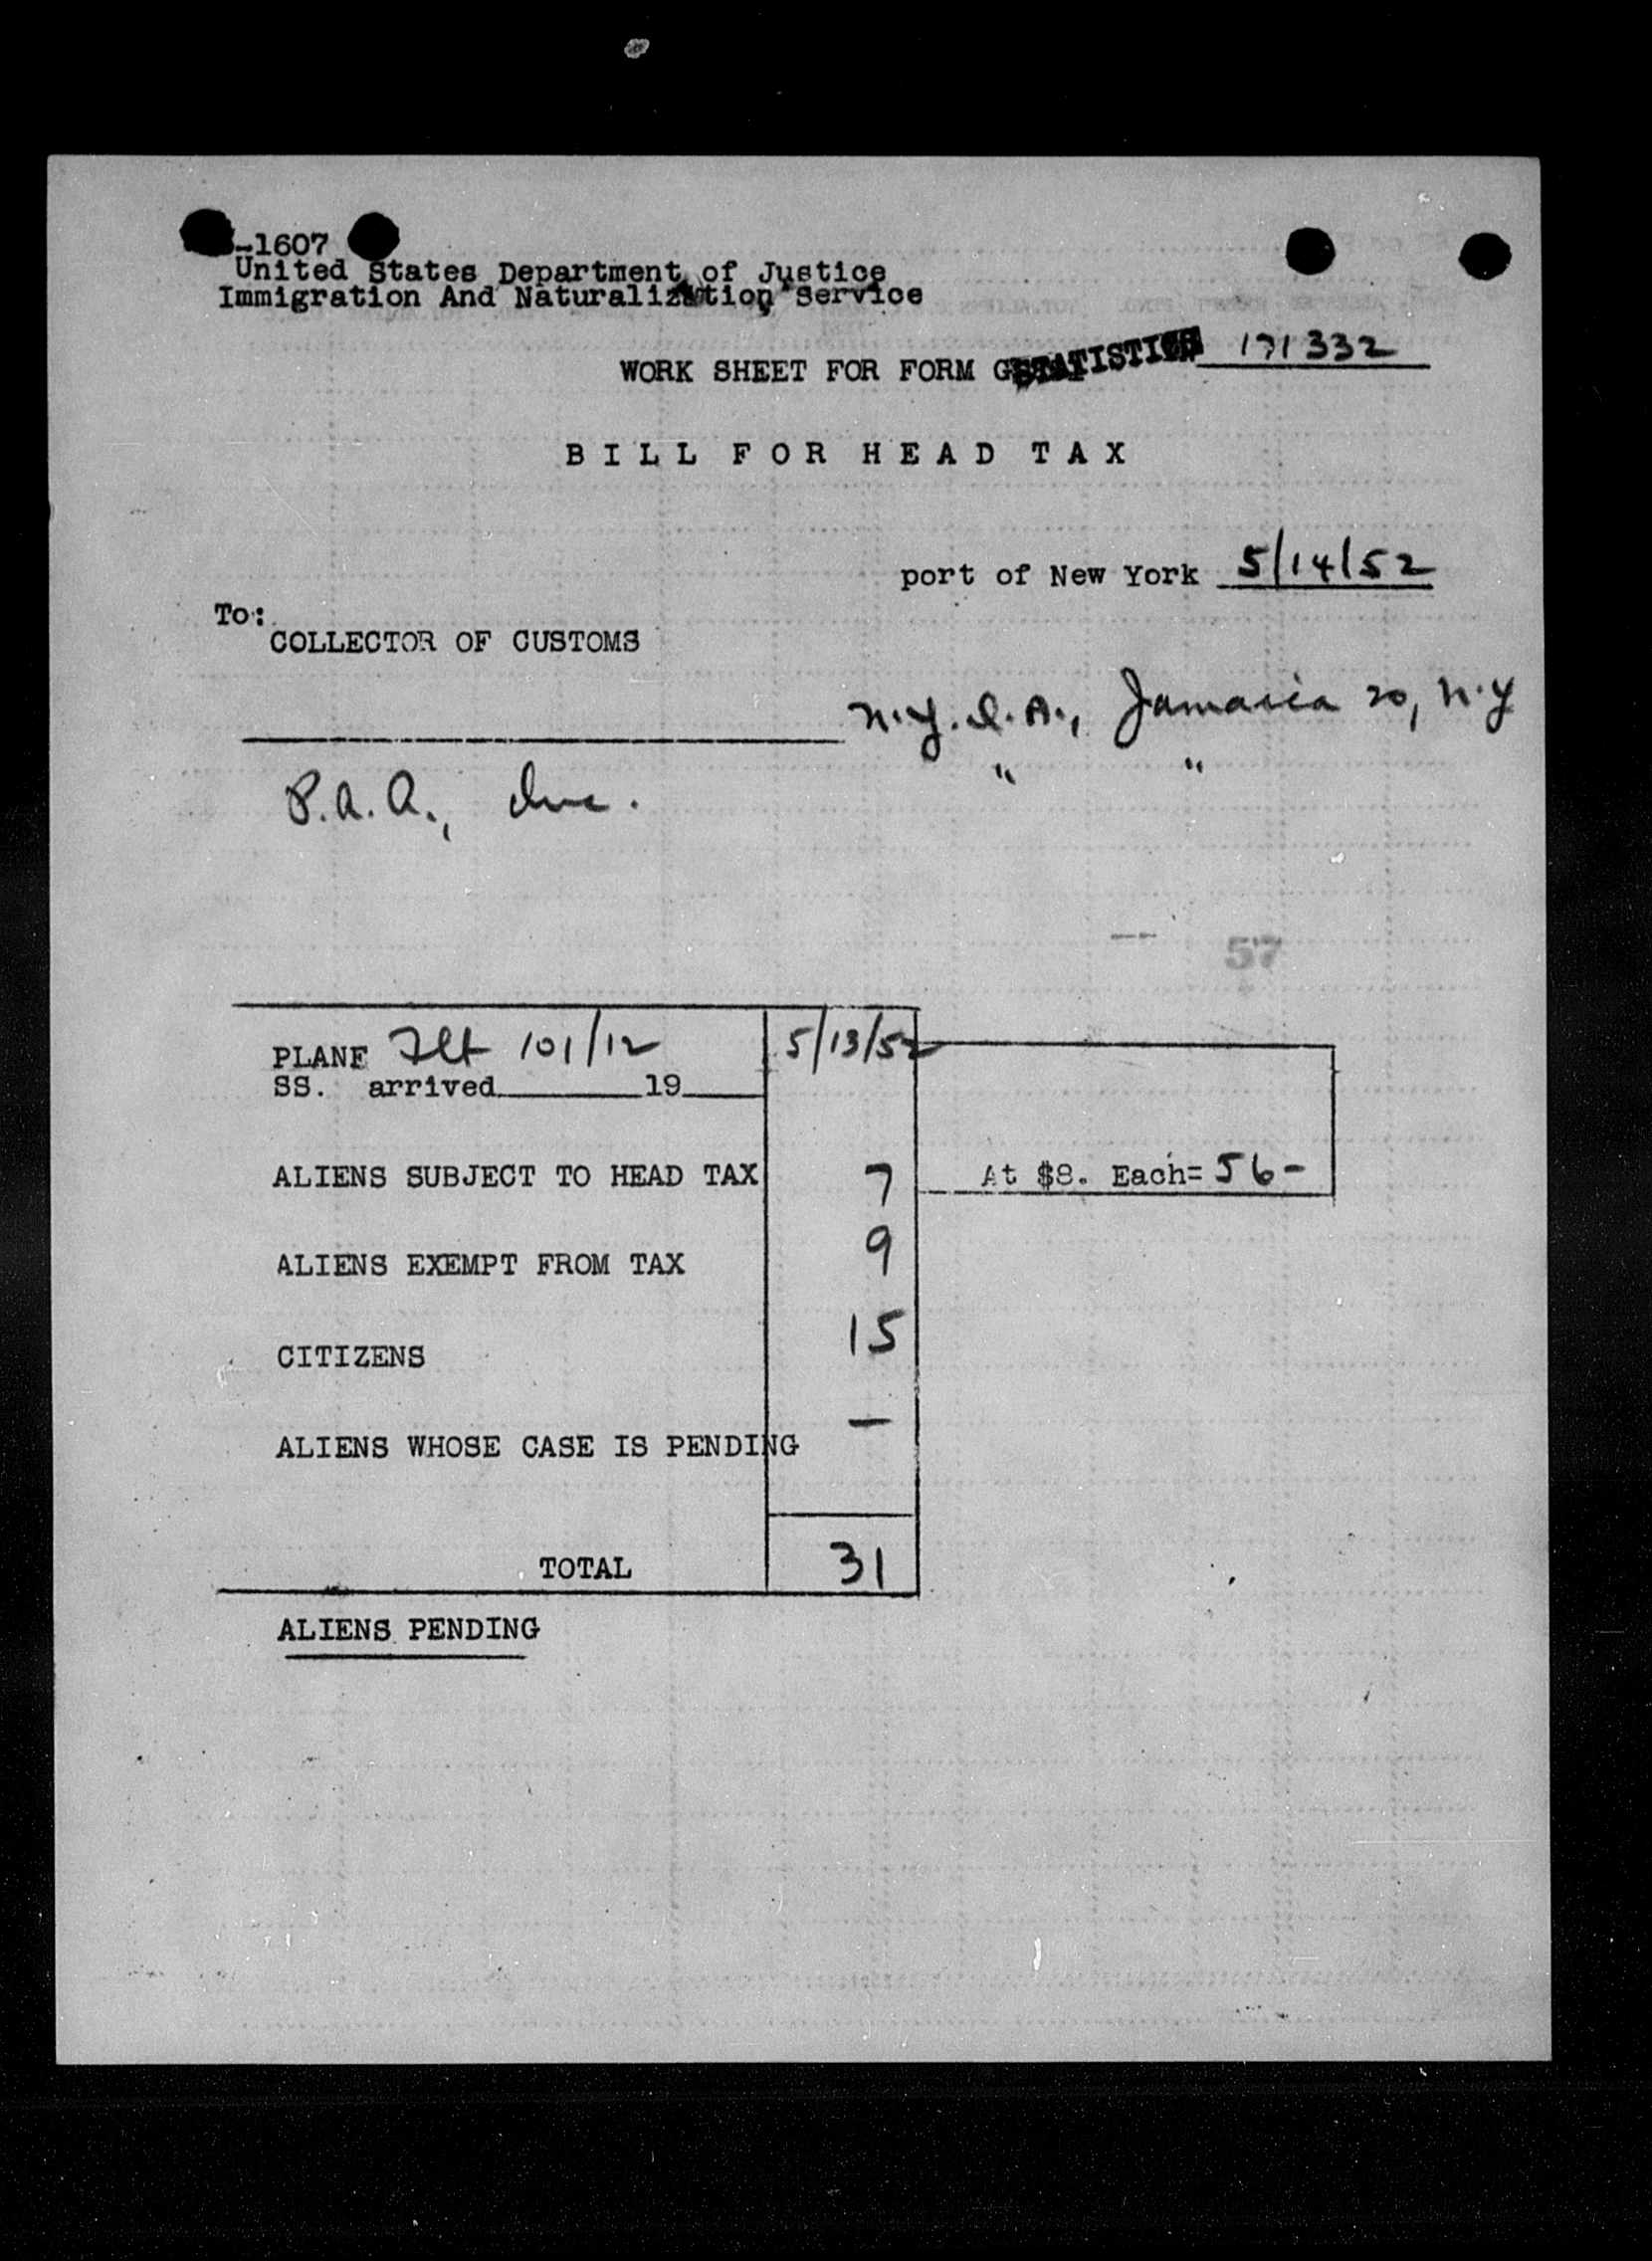 -1607
United States Department of Justice
Immigration And Naturalization Service
WORK SHEET FOR FORM G STATISTICS 171332
BILL FOR HEAD TAX
port of New York 5/14/52
To:
COLLECTOR OF CUSTOMS
N.Y.I.A., Jamaica 20, N.Y
" "
P.A.A., Inc.
57
PLANE Flt 101/12 5/13/52
SS. arrived 19
ALIENS SUBJECT TO HEAD TAX 7 At $8. Each= 56-
ALIENS EXEMPT FROM TAX 9
CITIZENS 15
ALIENS WHOSE CASE IS PENDING —
TOTAL 31
ALIENS PENDING